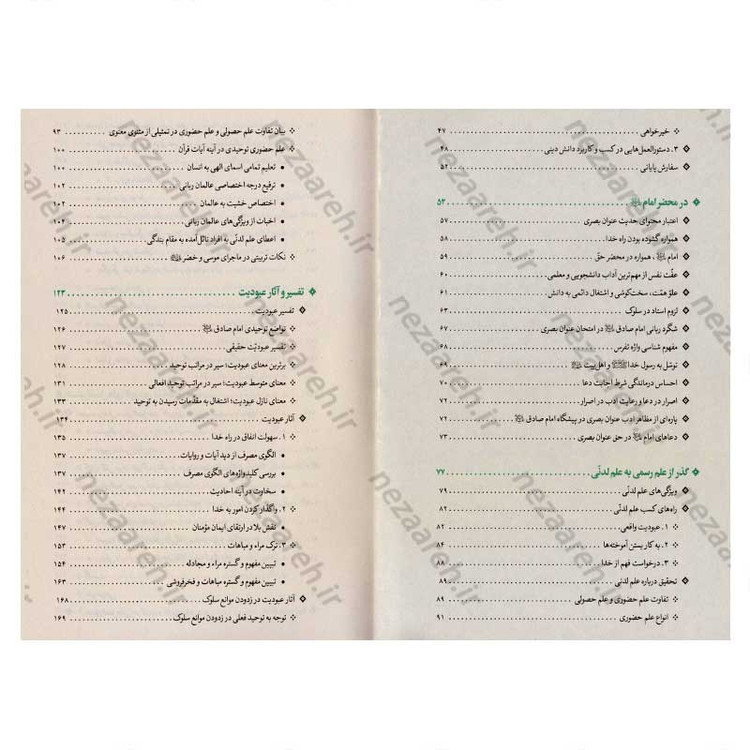 خیرخواهی ........ ۴۷
۳. دستورالعمل‌هایی در کسب و کاربرد دانش دینی ........ ۴۸
سفارش پایانی ........ ۵۲
در محضر امام ........ ۵۳
اعتبار محتوای حدیث عنوان بصری ........ ۵۷
همواره گشوده بودن راه خدا ........ ۵۸
امام، همواره در محضر حقّ ........ ۵۹
عفّت نفس از مهم‌ترین آداب دانشجویی و معلمی ........ ۶۰
علوّ همّت، سخت‌کوشی و اشتغال دائمی به دانش ........ ۶۱
لزوم استاد در سلوک ........ ۶۳
شگرد ربانی امام صادق در امتحان عنوان بصری ........ ۶۷
مفهوم شناسی واژه تفرس ........ ۶۸
توسّل به رسول خدا و اهل بیت ........ ۶۹
احساس درماندگی شرط اجابت دعا ........ ۷۰
اصرار در دعا و رعایت ادب در اصرار ........ ۷۲
پاره‌ای از مظاهر ادب عنوان بصری در پیشگاه امام صادق ........ ۷۲
دعاهای امام در حق عنوان بصری ........ ۷۳
گذر از علم رسمی به علم لدنّی ........ ۷۷
ویژگی‌های علم لدنّی ........ ۷۹
راه‌های کسب علم لدنّی ........ ۸۲
۱. عبودیت واقعی ........ ۸۲
۲. به کار بستن آموخته‌ها ........ ۸۶
۳. درخواست فهم از خدا ........ ۸۸
تحقیق درباره علم لدنی ........ ۸۹
تفاوت علم حضوری و علم حصولی ........ ۸۹
انواع علم حضوری ........ ۹۱
بیان تفاوت علم حصولی و علم حضوری در تمثیلی از مثنوی معنوی ........ ۹۳
علم حضوری توحیدی در آینه آیات قرآن ........ ۱۰۰
تعلیم تمامی اسمای الهی به انسان ........ ۱۰۰
ترفیع درجه اختصاصی عالمان ربانی ........ ۱۰۲
اختصاص خشیت به عالمان ........ ۱۰۲
اخبات از ویژگی‌های عالمان ربانی ........ ۱۰۴
اعطای علم لدنّی به افراد نائل آمده به مقام بندگی ........ ۱۰۵
نکات تربیتی در ماجرای موسی و خضر ........ ۱۰۶
تفسیر و آثار عبودیت ........ ۱۲۳
تفسیر عبودیت ........ ۱۲۵
تواضع توحیدی امام صادق ........ ۱۲۶
تفسیر عبودیّت حقیقی ........ ۱۲۷
برترین معنای عبودیت؛ سیر در مراتب توحید ........ ۱۲۸
معنای متوسط عبودیت؛ سیر در مراتب توحید افعالی ........ ۱۳۱
معنای نازل عبودیت؛ اشتغال به مقدّمات رسیدن به توحید ........ ۱۳۳
آثار عبودیت ........ ۱۳۴
۱. سهولت انفاق در راه خدا ........ ۱۳۵
الگوی مصرف از دید آیات و روایات ........ ۱۳۷
بررسی کلیدواژه‌های الگوی مصرف ........ ۱۳۷
سخاوت در آینه احادیث ........ ۱۴۲
۲. واگذار کردن امور به خدا ........ ۱۴۴
نقش بلا در ارتقای ایمان مؤمنان ........ ۱۴۷
۳. ترک مراء و مباهات ........ ۱۵۳
تبیین مفهوم و گستره مراء و مجادله ........ ۱۵۴
تبیین مفهوم و گستره مباهات و فخرفروشی ........ ۱۶۳
آثار عبودیت در زدودن موانع سلوک ........ ۱۶۸
توجه به توحید فعلی در زدودن موانع سلوک ........ ۱۶۹
nezaareh.ir